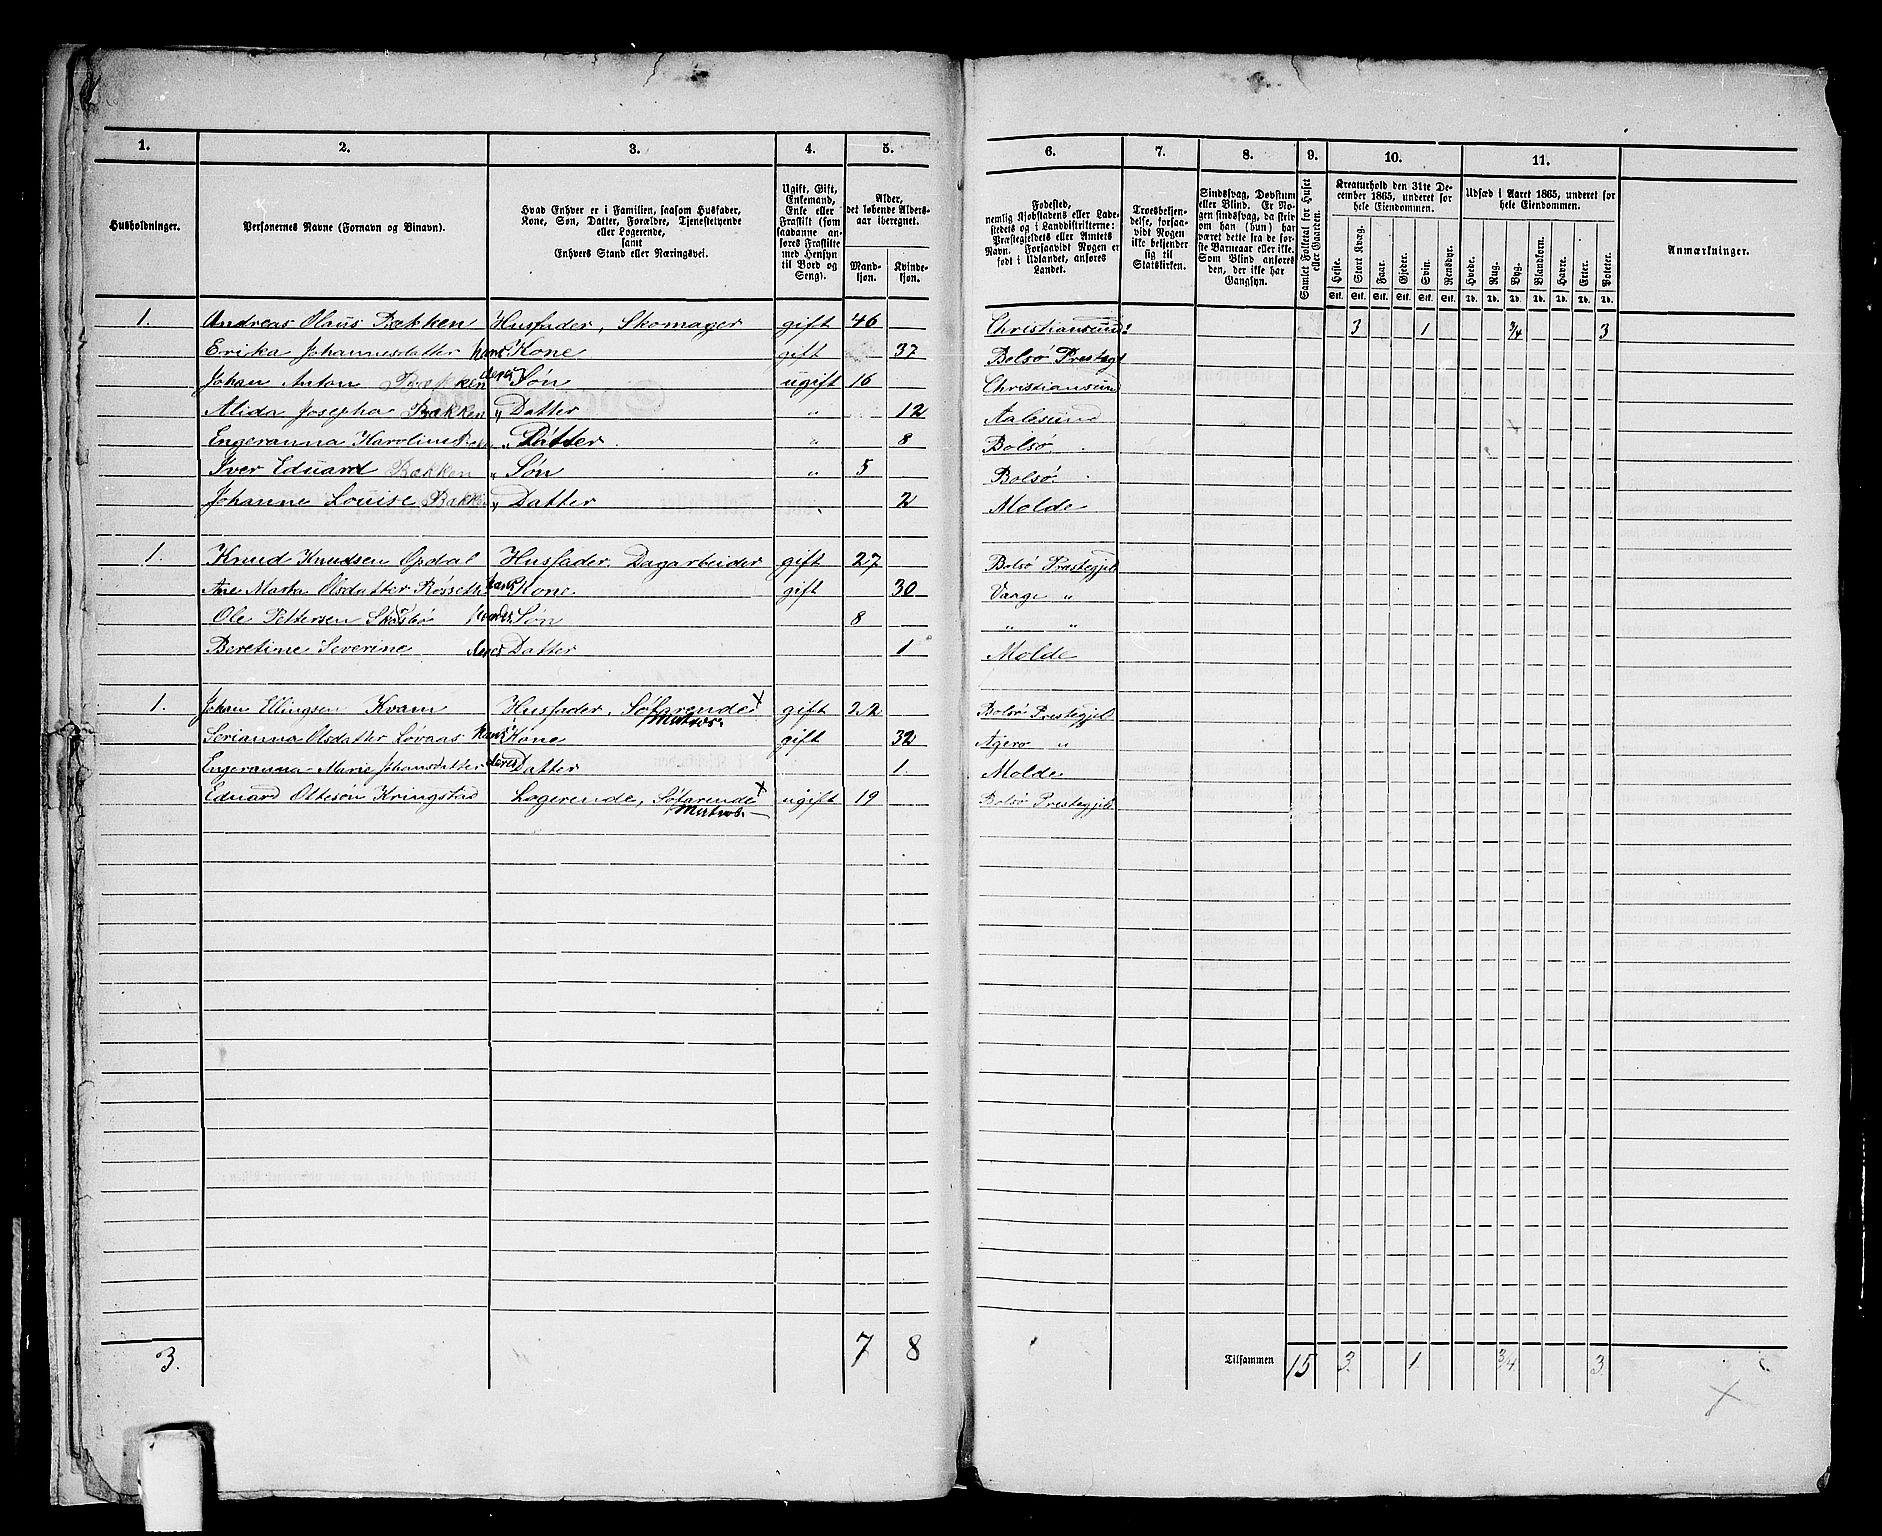 1. 2. 3. 4. 5. 6. 7. 8. 9. 10. 11.
Husholdninger.
Personernes Navne (Fornavn og Binavn).
Hvad Enhver er i Familien, saasom Husfader,
Kone, Søn, Datter, Forældre, Tjenestetyende
eller Logerende,
samt
Enhvers Stand eller Næringsvei.
Ugift, Gift,
Enkemand,
Enke eller
Fraskilt (som
saadanne an-
føres Fraskilte
med Hensyn
til Bord og
Seng).
Alder,
det løbende Alders-
aar iberegnet.
Mand-
kjøn.
Kvinde-
kjøn.
Fødested,
nemlig Kjøbstadens eller Lade-
stedets og i Landdistrikterne:
Præstegjeldets eller Amtets
Navn. Forsaavidt Nogen er
født i Udlandet, anføres
Landet.
Troesbekjen-
delse, forsaa-
vidt Nogen
ikke bekjender
sig til
Statskirken.
Sindssvag, Døvstum
eller Blind. Er No-
gen sindssvag, da skriv
om han (hun) har
været dette fra de før-
ste Barneaar eller ikke.
Som Blind anføres
den, der ikke har
Gangsyn.
Samlet Folketal for Huset
eller Gaarden.
Kreaturhold den 31te De-
cember 1865, underet for
hele Eiendommen.
Heste. Stort Kvæg. Faar. Gjeder. Svin. Rensdyr.
Stk. Stk. Stk. Stk. Stk. Stk.
Udsæd i Aaret 1865, underet for
hele Eiendommen.
Hvede. Rug. Byg. Blandkorn. Havre. Erter. Poteter.
Td. Td. Td. Td. Td. Td. Td.
Anmærkninger.
1. Andreas Olaus Bækken Husfader, Skomager gift 46 Christiansund 3 1 3/4 3
Erika Johannesdatter hans Kone gift 37 Bolsø Prestegj
Johan Anton Bækken deres Søn ugift 16 Christiansund
Alida Josepha Bækken " Datter " 12 Aalesund
Engeranna Karoline " Datter " 8 Bolsø
Iver Eduard Bækken " Søn " 5 Bolsø
Johanne Louise Bækken " Datter 2 Molde
1. Knud Knudsen Opdal Husfader, Dagarbeider gift 27 Bolsø Prestegjel
Ane Marta Olsdatter Røsseth hans Kone gift 30 Vaage "
Ole Pettersen Søn 8 " "
Beretine Severine deres Datter 1 Molde
1. Johan Ellingsen Kvam Husfader, Søfarende × gift 22 Bolsø Prestegjel
Matros
Serianna Olsdatter Løvaas hans Kone gift 32 Agerø "
Engeranna Marie Johansdatter deres Datter 1. Molde
Eduard Ottesøn Kringstad Logerende, Søfarende × ugift 19 Bolsø Prestegjel
Matros
3. 7 8 Tilsammen 15 3. 1. 3/4 3
×